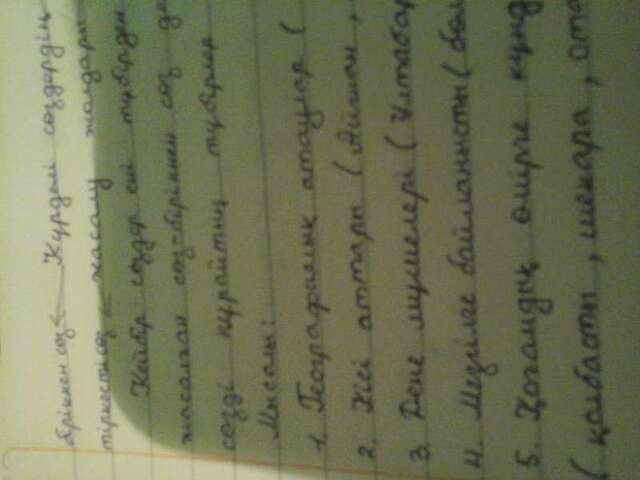 біріккен сөз ← Күрделі сөздердің
тіркесті сөз ← жасалу жолдары
Кейбір сөздер екі түбірден
жасалған сөз-біріккен сөз де
сөзді құрайтын түбірлер
Мысалы:
1. Географиялық атаулар (
2. Кісі аттары (Айгион,
3. Дене мүшелері (Ұлтабар
4. Мезгілге байланысты (бел
5. Қоғамдық өмірге күнд
(қолбасты, шекара, ота